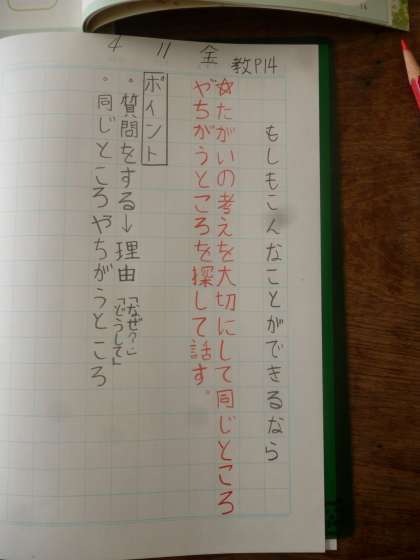 4 11 金
教P14
もしもこんなことができるなら
☆たがいの考えを大切にして同じところ
やちがうところを探して話す。
ポイント
・質問をする→理由「なぜ?」
「どうして」
・同じところやちがうところ